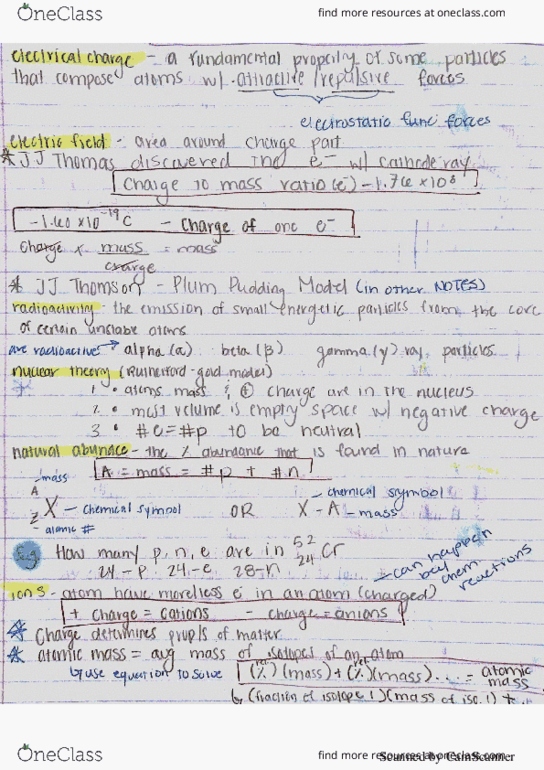 OneClass
find more resources at oneclass.com
electrical charge - a fundamental property of some particles
that compose atoms w/ attractive/repulsive forces
electrostatic func forces
electric field - area around charge part
* JJ Thomas discovered the e⁻ w/ cathode ray
charge to mass ratio (e⁻) -1.76 x10⁸
-1.60 x10⁻¹⁹C - charge of one e⁻
charge x mass/charge = mass
* JJ Thomson - Plum Pudding Model (in other NOTES)
radioactivity - the emission of small energetic particles from the core
of certain unstable atoms
are radioactive → alpha (α) beta (β) gamma (γ) ray particles
nuclear theory (Rutherford-gold model)
1 • atoms mass & ⊕ charge are in the nucleus
2 • most volume is empty space w/ negative charge
3 • #e=#p to be neutral
natural abundace - the % abundance that is found in nature
A = mass = #p + #n
-mass
A
X - chemical symbol OR X - A
Z
- atomic #
- chemical symbol
- mass
Eg. How many p, n, e are in ⁵²₂₄Cr
24-p 24-e 28-n
ions - atom have more/less e⁻ in an atom (charged)
- can happen
by
chem.
reactions
+ charge = cations - charge = anions
* Charge determines prop's of matter
* atomic mass = avg mass of isotopes of an atom
↳ use equation to solve (%)(mass) + (%)(mass) ... = atomic
mass
↳ (fraction of isotope 1)(mass of iso. 1) +
OneClass
find more resources at oneclass.com
Scanned by CamScanner